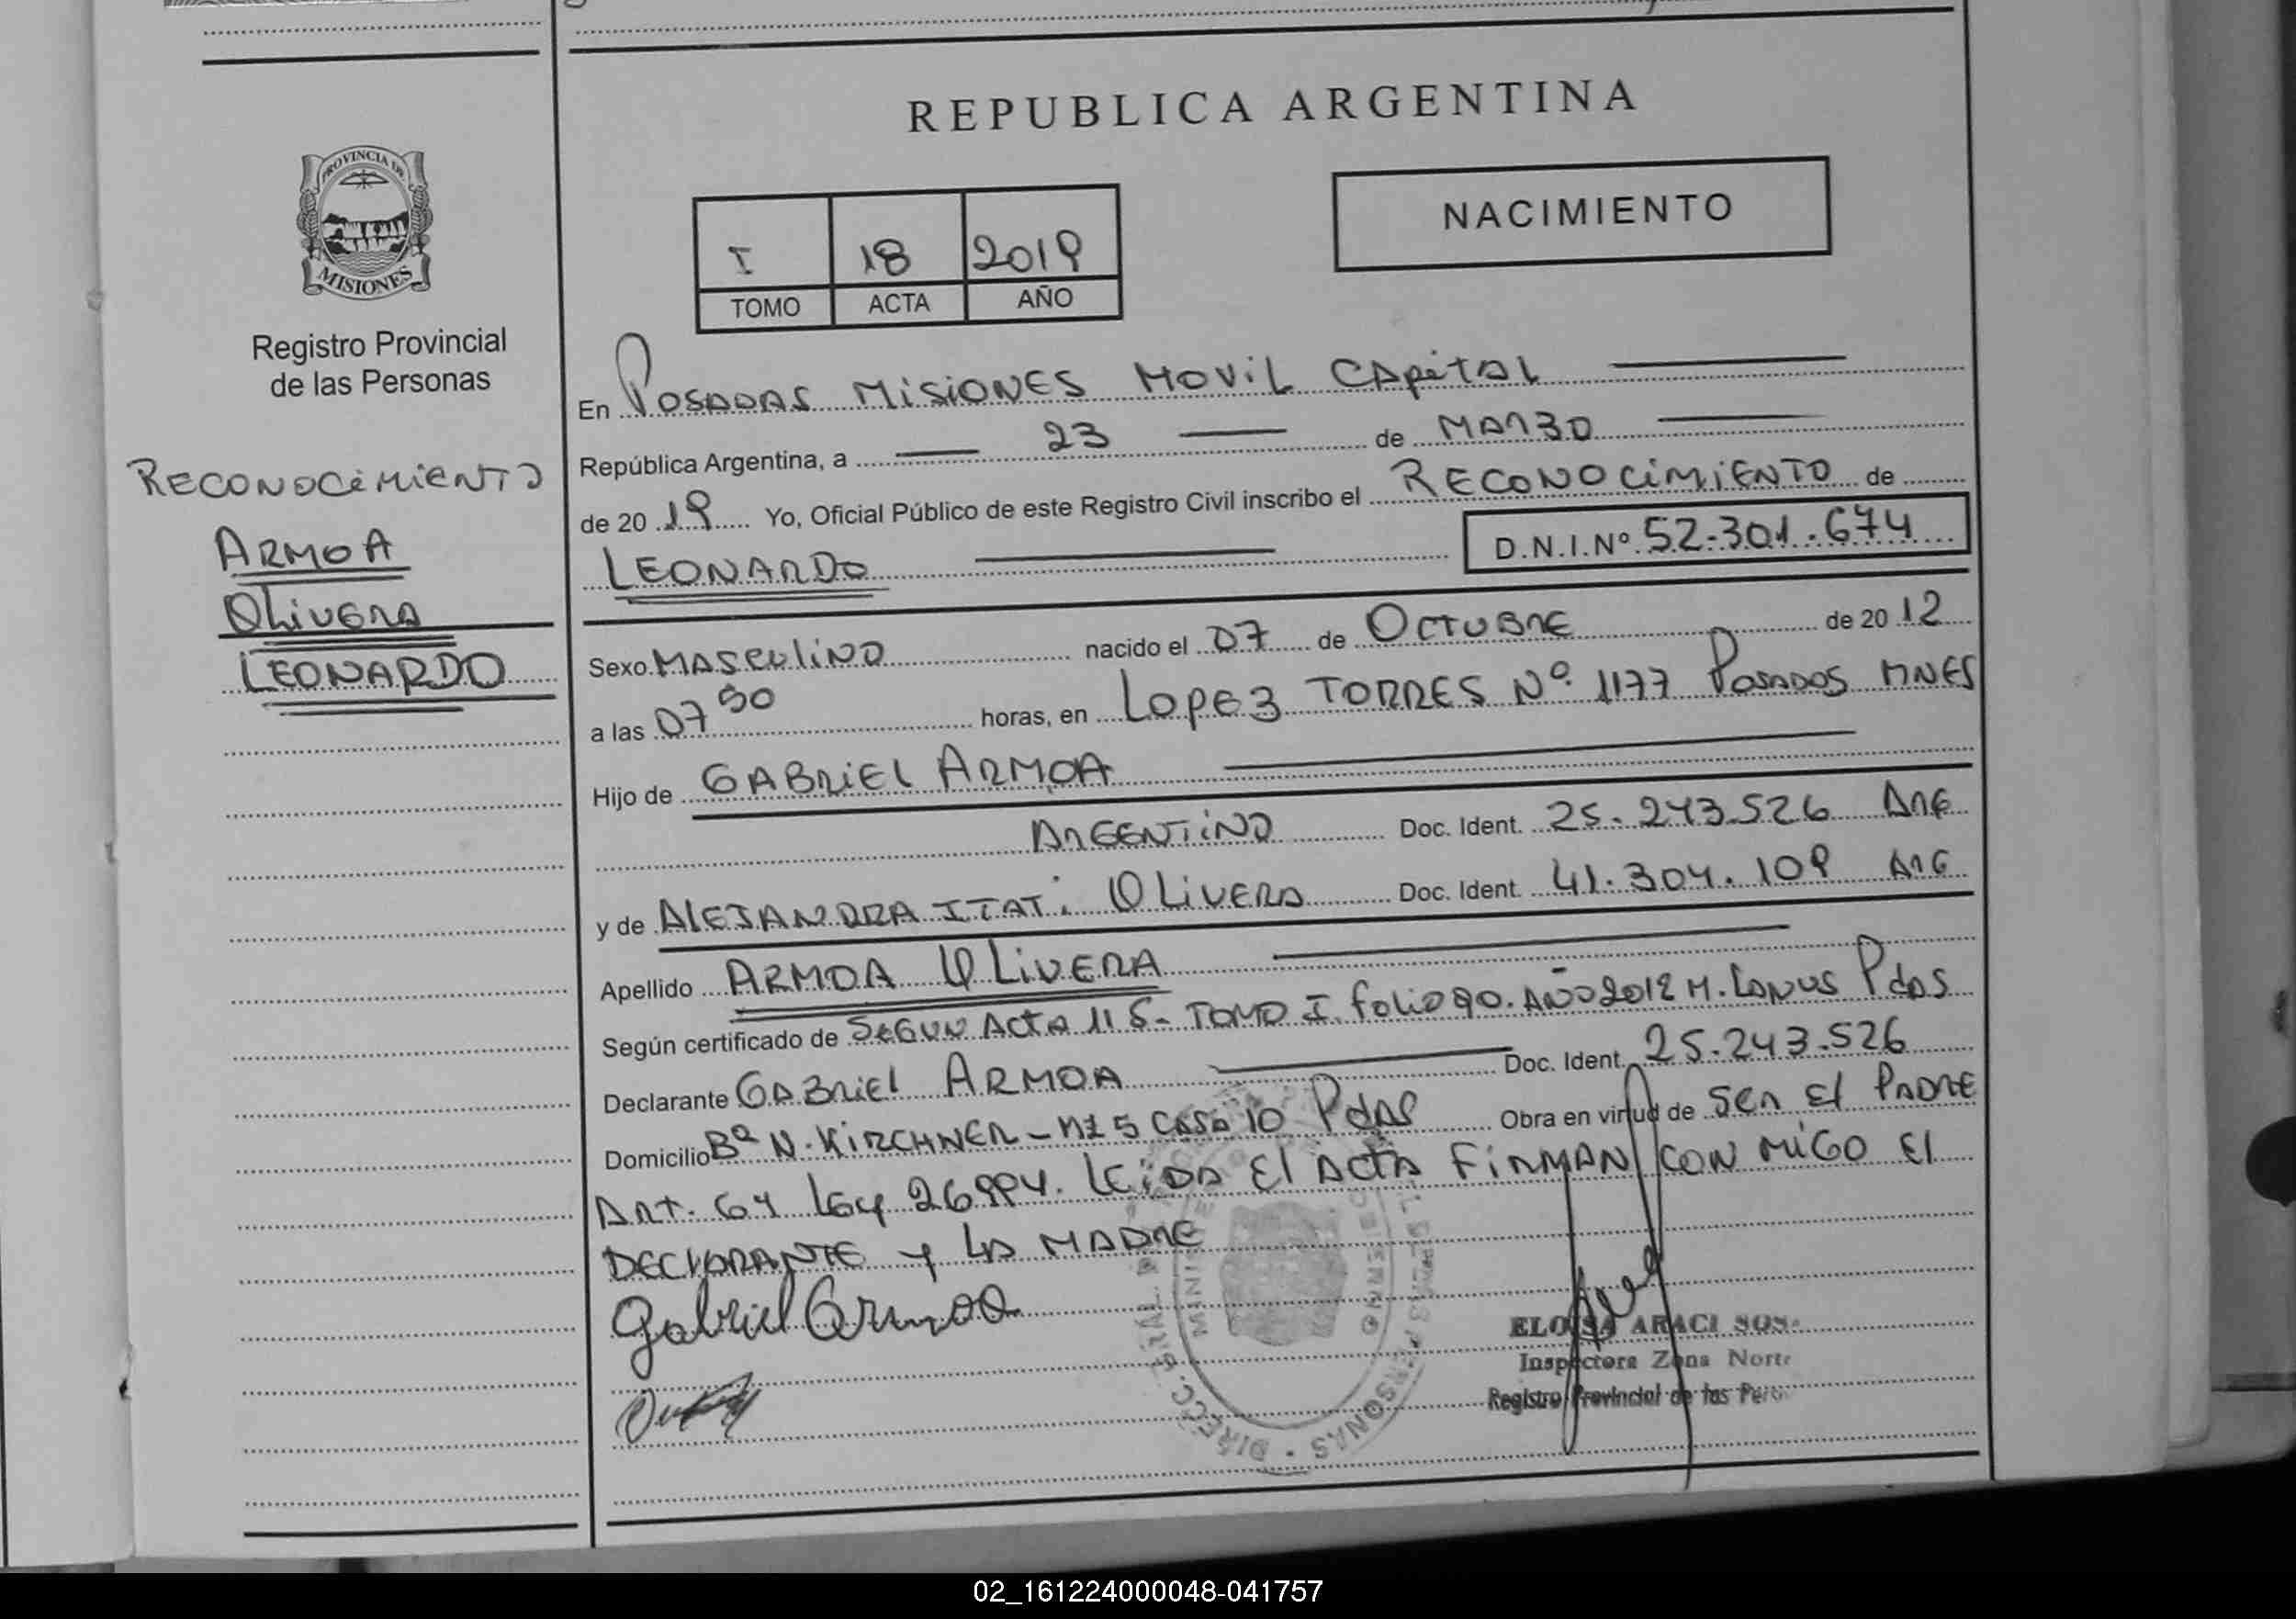 REPUBLICA ARGENTINA
NACIMIENTO
I 18 2019
TOMO ACTA AÑO
PROVINCIA DE
MISIONES
Registro Provincial
de las Personas
RECONOCIMIENTO
ARMOA
OLIVERA
LEONARDO
En POSADAS MISIONES MOVIL CAPITAL
República Argentina, a 23 de MARZO
de 20 19 Yo, Oficial Público de este Registro Civil inscribo el RECONOCIMIENTO de
LEONARDO D.N.I.Nº 52.301.674
Sexo MASCULINO nacido el 07 de OCTUBRE de 20 12
a las 07 50 horas, en LOPEZ TORRES Nº 1177 POSADAS MNES
Hijo de GABRIEL ARMOA
ARGENTINO Doc. Ident. 25.243.526 ARG
y de ALEJANDRA ITATI OLIVERA Doc. Ident. 41.304.109 ARG
Apellido ARMOA OLIVERA
Según certificado de SEGUN ACTA 115- TOMO I folio 90. AÑO 2012 M. LANUS Pdas
Declarante GABRIEL ARMOA Doc. Ident. 25.243.526
Domicilio Bº N. KIRCHNER - MZ 5 CASA 10 Pdas Obra en virtud de SER El PADRE
Art. 64 Ley 26994. LEIDA El ACTA FIRMAN CON MIGO El
DECLARANTE y LA MADRE
Gabriel Armoa
ELOISA ARACI SOS
Inspectora Zona Norte
Registro Provincial de las Pers
02_161224000048-041757